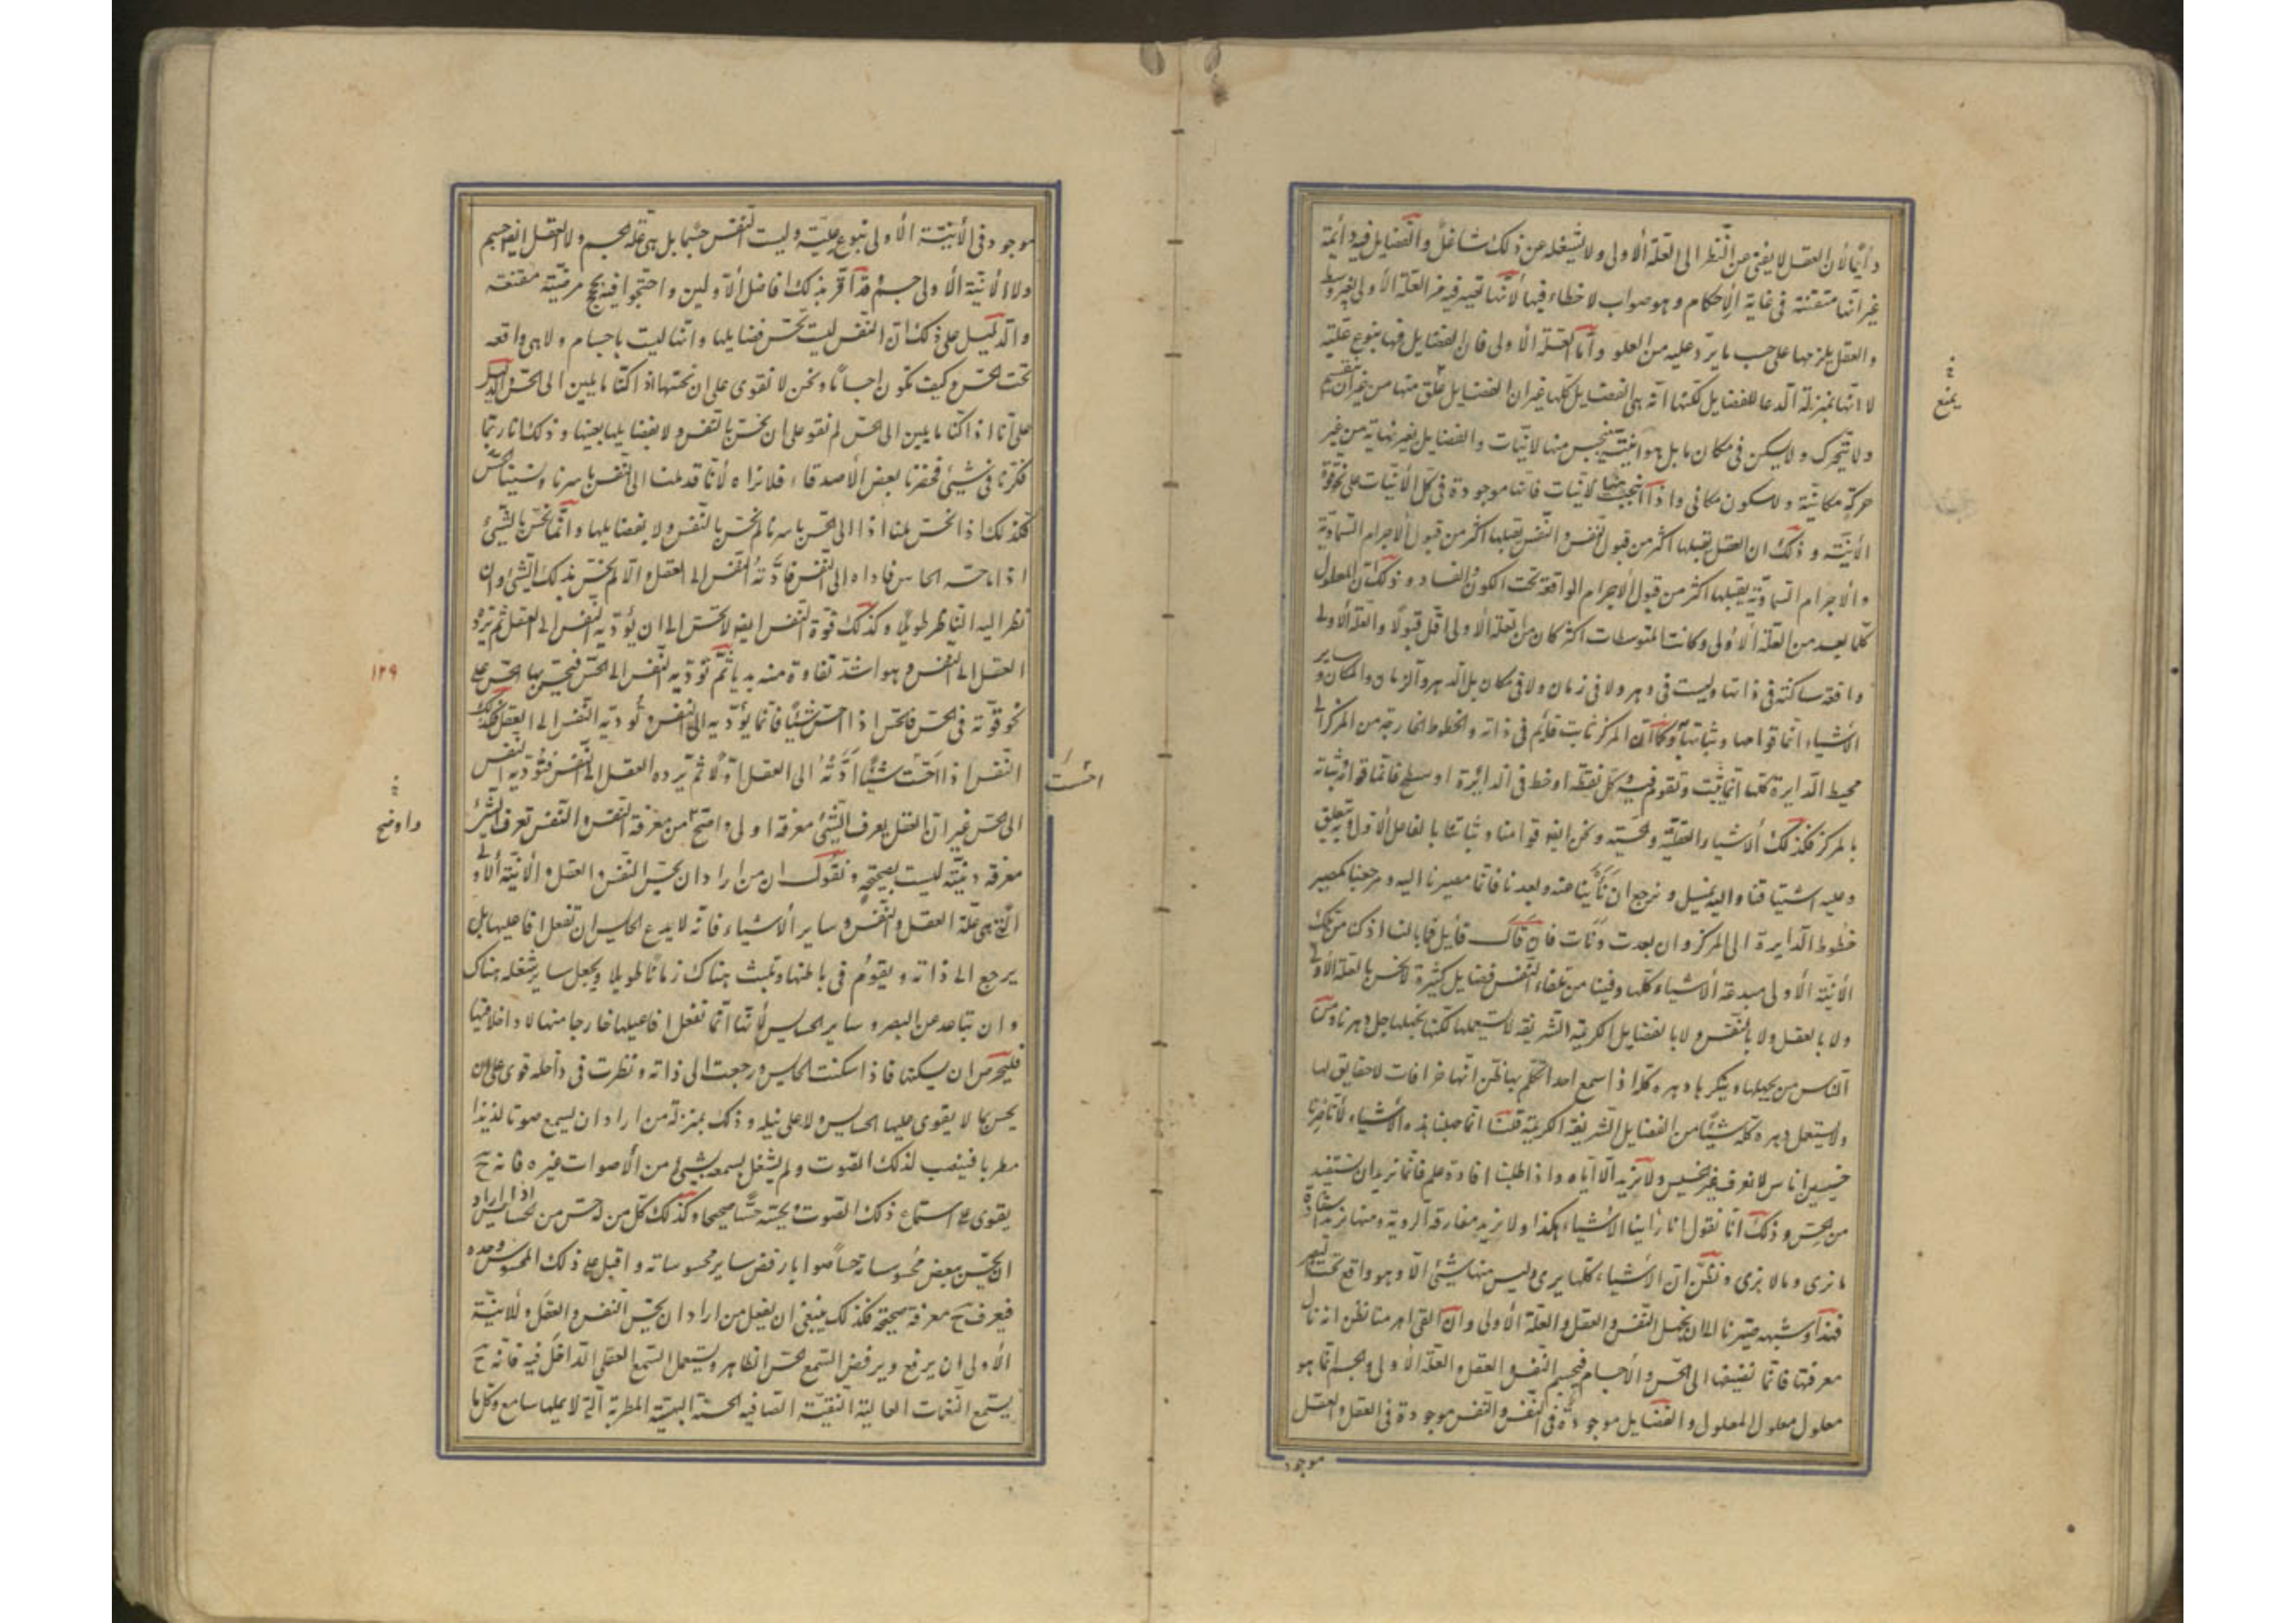 دائما لأن العقل لا يفنى عن النظر الى العلة الأولى ولا يشغله عن ذلك شاغل والفضايل فيه دائمة
غير انها متقنة فى غاية الإحكام وهو صواب لا خطاء فيها لأنها تصير فيه من العلة الأولى بغير وسط
والعقل يلزمها على حسب ما يرد عليه من العلو وأما العلة الأولى فان الفضايل فيها بنوع علية
لا انها بمنزلة الدعا للفضايل لكنها انه هى الفضايل كلها غير ان الفضايل تنبع منها من غير ان تنقسم
ولا تتحرك ولا يسكن فى مكان ما بل هو انية ينبجس منها الانيات والفضايل بغير نهاية من غير
حركة مكانية ولا سكون مكانى واذا انبجست منها الانيات فانها موجودة فى كل الأنيات على نحو قوة
الأنية وذلك ان العقل يقبلها اكثر من قبول النفس والنفس يقبلها اكثر من قبول الاجرام السماوية
والأجرام السماوية يقبلها اكثر من قبول الاجرام الواقعة تحت الكون والفساد وذلك ان المعلول
كلما بعد من العلة الأولى وكانت المتوسطات اكثر كان من العلة الأولى اقل قبولا والعلة الأولى
واقفة ساكنة فى ذاتها وليست فى دهر ولا فى زمان ولا فى مكان بل الدهر والزمان والمكان وساير
الأشياء انما قوامها وثباتها بها وكما أن المركز ثابت قايم فى ذاته والخطوط الخارجة من المركز الى
محيط الدايرة كلها انما يثبت وتقوم فيه وكل نقطة او خط فى الدائرة او سطح فانما قوامه وثباته
بالمركز فكذلك الأشياء العقلية والحسية ونحن ايضا قوامنا وثباتنا بالفاعل الأول وبه يتعلق
وعليه اشتياقنا واليه نميل ونرجع ان نأينا عنه وبعدنا فانما مصيرنا اليه ومرجعنا كمصير
خطوط الدايرة الى المركز وان بعدت ونأت فان قال قائل فما بالنا اذ كنا من تلك
الأنية الأولى مبدعة الأشياء كلها وفينا من تلقاء النفس فضايل كثيرة لا نحس بالعلة الأولى
ولا بالعقل ولا بالنفس ولا بالفضايل الكريمة الشريفة لا نستعملها لكننا نجهلها جل دهرنا ومن
الناس من يجهلها وينكرها دهره كله اذا سمع احدا تكلم بها ظن انها خرافات لا حقايق لها
ولا يستعمل دهره كله شيئا من الفضايل الشريفة الكريمة قلنا انما جهلنا هذه الأشياء لأنا صرنا
حسيين اناس لا نعرف غير الحسيس ولا نريد الا اياه واذا طلبنا افادة علم فانما نريد ان نستفيد
من الحس وذلك أنا نقول انا راينا الأشياء هكذا ولا نريد مفارقة الروية ومنها نريد استفادة
ما نرى وما لا نرى ونظن ان الأشياء كلها يرى وليس منها شيئ الا وهو واقع تحت البصر
فهذا وشبهه صيرنا الى ان نجهل النفس والعقل والعلة الأولى وان القى امر منا نظن انه نال
معرفتها فانما نضيفها الى الحس والأجسام فيجسم النفس والعقل والعلة الأولى والجسم انما هو
معلول معلول المعلول والفضايل موجودة فى النفس والنفس موجودة فى العقل والعقل
موجود
يمنع
موجود فى الأنية الأولى بنوع علية وليست النفس جسما بل هى علة الجسم ولا العقل ايضا جسم
ولا الأنية الأولى جسم قد اقر بذلك افاضل الأولين واحتجوا فيه بحجج مرضية مقنعة
والدليل على ذلك ان النفس ليست تحس فضايلها وانها ليست باجسام ولا هى واقعه
تحت الحس وكيف تكون اجساما ونحن لا نقوى على ان نحسها اذ كنا مايلين الى الحس والدليل
على انا اذا كنا مايلين الى الحس لم نقو على ان نحس بالنفس ولا بفضايلها بعينها وذلك انا ربما
فكرنا فى شيئ فحضرنا بعض الأصدقاء فلا نراه لأنا قد ملنا الى النفس باسرنا ونسينا الحس
فكذلك اذا نحن ملنا الى الحس باسرنا لم نحس بالنفس ولا بفضايلها وانما نحس بالشيئ
اذا ما حسه الحاس فاداه الى النفس فادته النفس الى العقل والا لم يحس بذلك الشيئ وان
نظر اليه الناظر طويلا وكذلك قوة النفس ايضا لا تحس الى ان يؤديه النفس الى العقل ثم يرده
العقل الى النفس وهو اشد نقاوة منه بديا ثم تؤديه النفس الى الحس فيحس بها الحس على
نحو قوته فى الحس فالحس اذا احس شيئا فانما يؤديه الى النفس وتؤديه النفس الى العقل فكذلك
النفس اذا احست شيئا ادته الى العقل اولا ثم يرده العقل الى النفس فتؤديه النفس
الى الحس غير ان العقل يعرف الشيئ معرفة اولى واضح من معرفة النفس والنفس تعرف الشيئ
معرفة دنية ليست بصحيحة ونقول ان من اراد ان يحس النفس والعقل والأنية الأولى
التى هى علة العقل والنفس وساير الأشياء فانه لا يدع الحسايس ان تفعل افاعيلها بل
يرجع الى ذاته ويقوم فى باطنها وتلبث هناك زمانا طويلا ويجعل ساير شغله هناك
وان تباعد عن البصر وساير الحسايس لأنها انما تفعل افاعيلها خارجا منها لا داخلا فيها
فليحرص ان يسكنها فاذا سكنت الحسايس ورجعت الى ذاته ونظرت فى داخله قوى على ان
يحس بما لا يقوى عليها الحسايس ولا على نيله وذلك بمنزلة من اراد ان يسمع صوتا لذيذا
مطربا فينصب لذلك الصوت ولم يشغل بسمعه بشيئ من الأصوات غيره فانه ح
يقوى على استماع ذلك الصوت ويحسه حسا صحيحا وكذلك كل من احس من الحسايس اذا اراد
ان يحس بعض محسوساته حسا صوابا رفض ساير محسوساته واقبل على ذلك المحسوس وحده
فيعرف ح معرفة صحيحة فكذلك ينبغى ان يفعل من اراد ان يحس النفس والعقل والأنية
الأولى ان يرفع ويرفض السمع الحس الظاهر ويستعمل السمع العقلى الداخل فيه فانه ح
يستمع النغمات العالية النقية الصافيه الحسنة البهية المطربة التى لا يملها سامع وكل ما
احست
١٢٩
واوضح